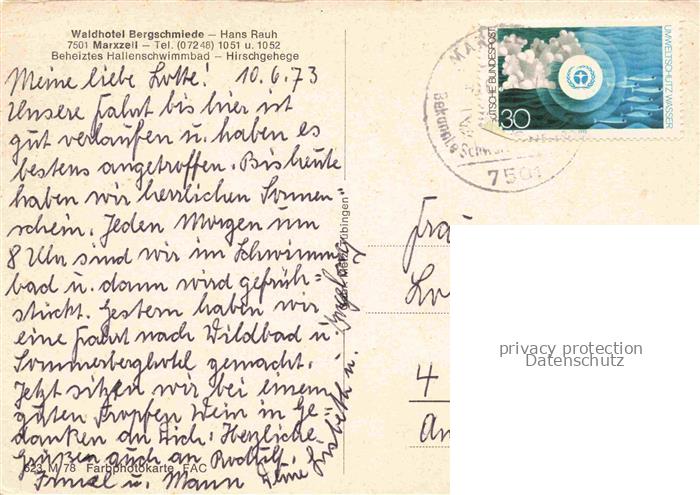 Waldhotel Bergschmiede — Hans Rauh
7501 Marxzell — Tel. (07248) 1051 u. 1052
Beheiztes Hallenschwimmbad — Hirschgehege
Meine liebe Lotte! 10.6.73
Unsere Fahrt bis hier ist
gut verlaufen u. haben es
bestens angetroffen. Bis heute
haben wir herrlichen Sonnen-
schein. Jeden Morgen um
8 Uhr sind wir im Schwimm-
bad u. dann wird gefrüh-
stückt. Gestern haben wir
eine Fahrt nach Wildbad u.
Sommerberghotel gemacht.
Jetzt sitzen wir bei einem
guten Tropfen Wein in Ge-
danken an Dich. Herzliche
Grüßen auch an Rudolf,
u. Mann Deine Lisbeth u.
623 M 78 Farbphotokarte FAC
Tübingen
DEUTSCHE BUNDESPOST
30
UMWELTSCHUTZ: WASSER
7501
Frau
4
privacy protection
Datenschutz